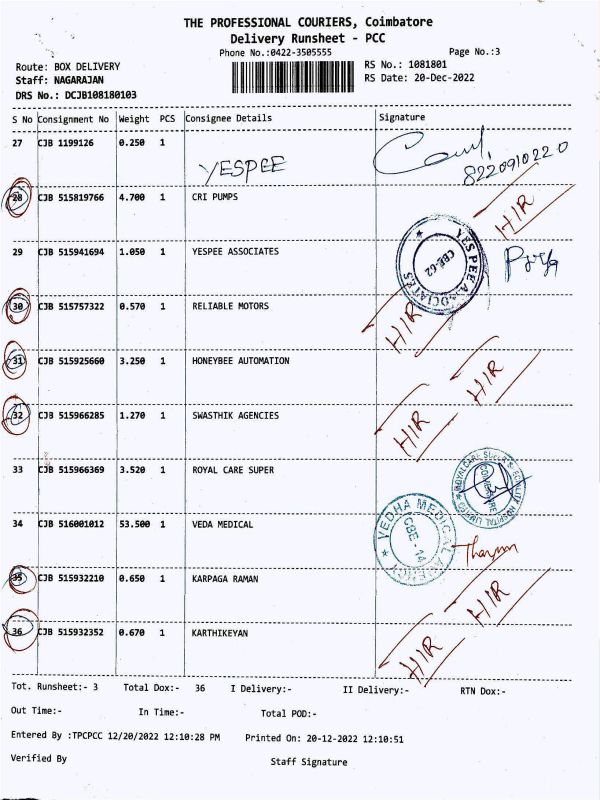 THE PROFESSIONAL COURIERS, Coimbatore
Delivery Runsheet - PCC
Phone No.:0422-3505555
Page No.:3
Route: BOX DELIVERY
RS No.: 1081801
Staff: NAGARAJAN
RS Date: 20-Dec-2022
DRS No.: DCJB108180103
S No Consignment No Weight PCS Consignee Details Signature
27 CJB 1199126 0.250 1
YESPEE
8220910220
28 CJB 515819766 4.700 1 CRI PUMPS
HIR
29 CJB 515941694 1.050 1 YESPEE ASSOCIATES
YES PEE ASSOCIATES
CBE-62
30 CJB 515757322 0.570 1 RELIABLE MOTORS
HIR
31 CJB 515925660 3.250 1 HONEYBEE AUTOMATION
HIR
32 CJB 515966285 1.270 1 SWASTHIK AGENCIES
HIR
33 CJB 515966369 3.520 1 ROYAL CARE SUPER
34 CJB 516001012 53.500 1 VEDA MEDICAL
VEDHA MEDICAL AGENCY
CBE - 14
35 CJB 515932210 0.650 1 KARPAGA RAMAN
HIR
36 CJB 515932352 0.670 1 KARTHIKEYAN
HIR
Tot. Runsheet:- 3 Total Dox:- 36 I Delivery:- II Delivery:- RTN Dox:-
Out Time:- In Time:- Total POD:-
Entered By :TPCPCC 12/20/2022 12:10:28 PM Printed On: 20-12-2022 12:10:51
Verified By
Staff Signature